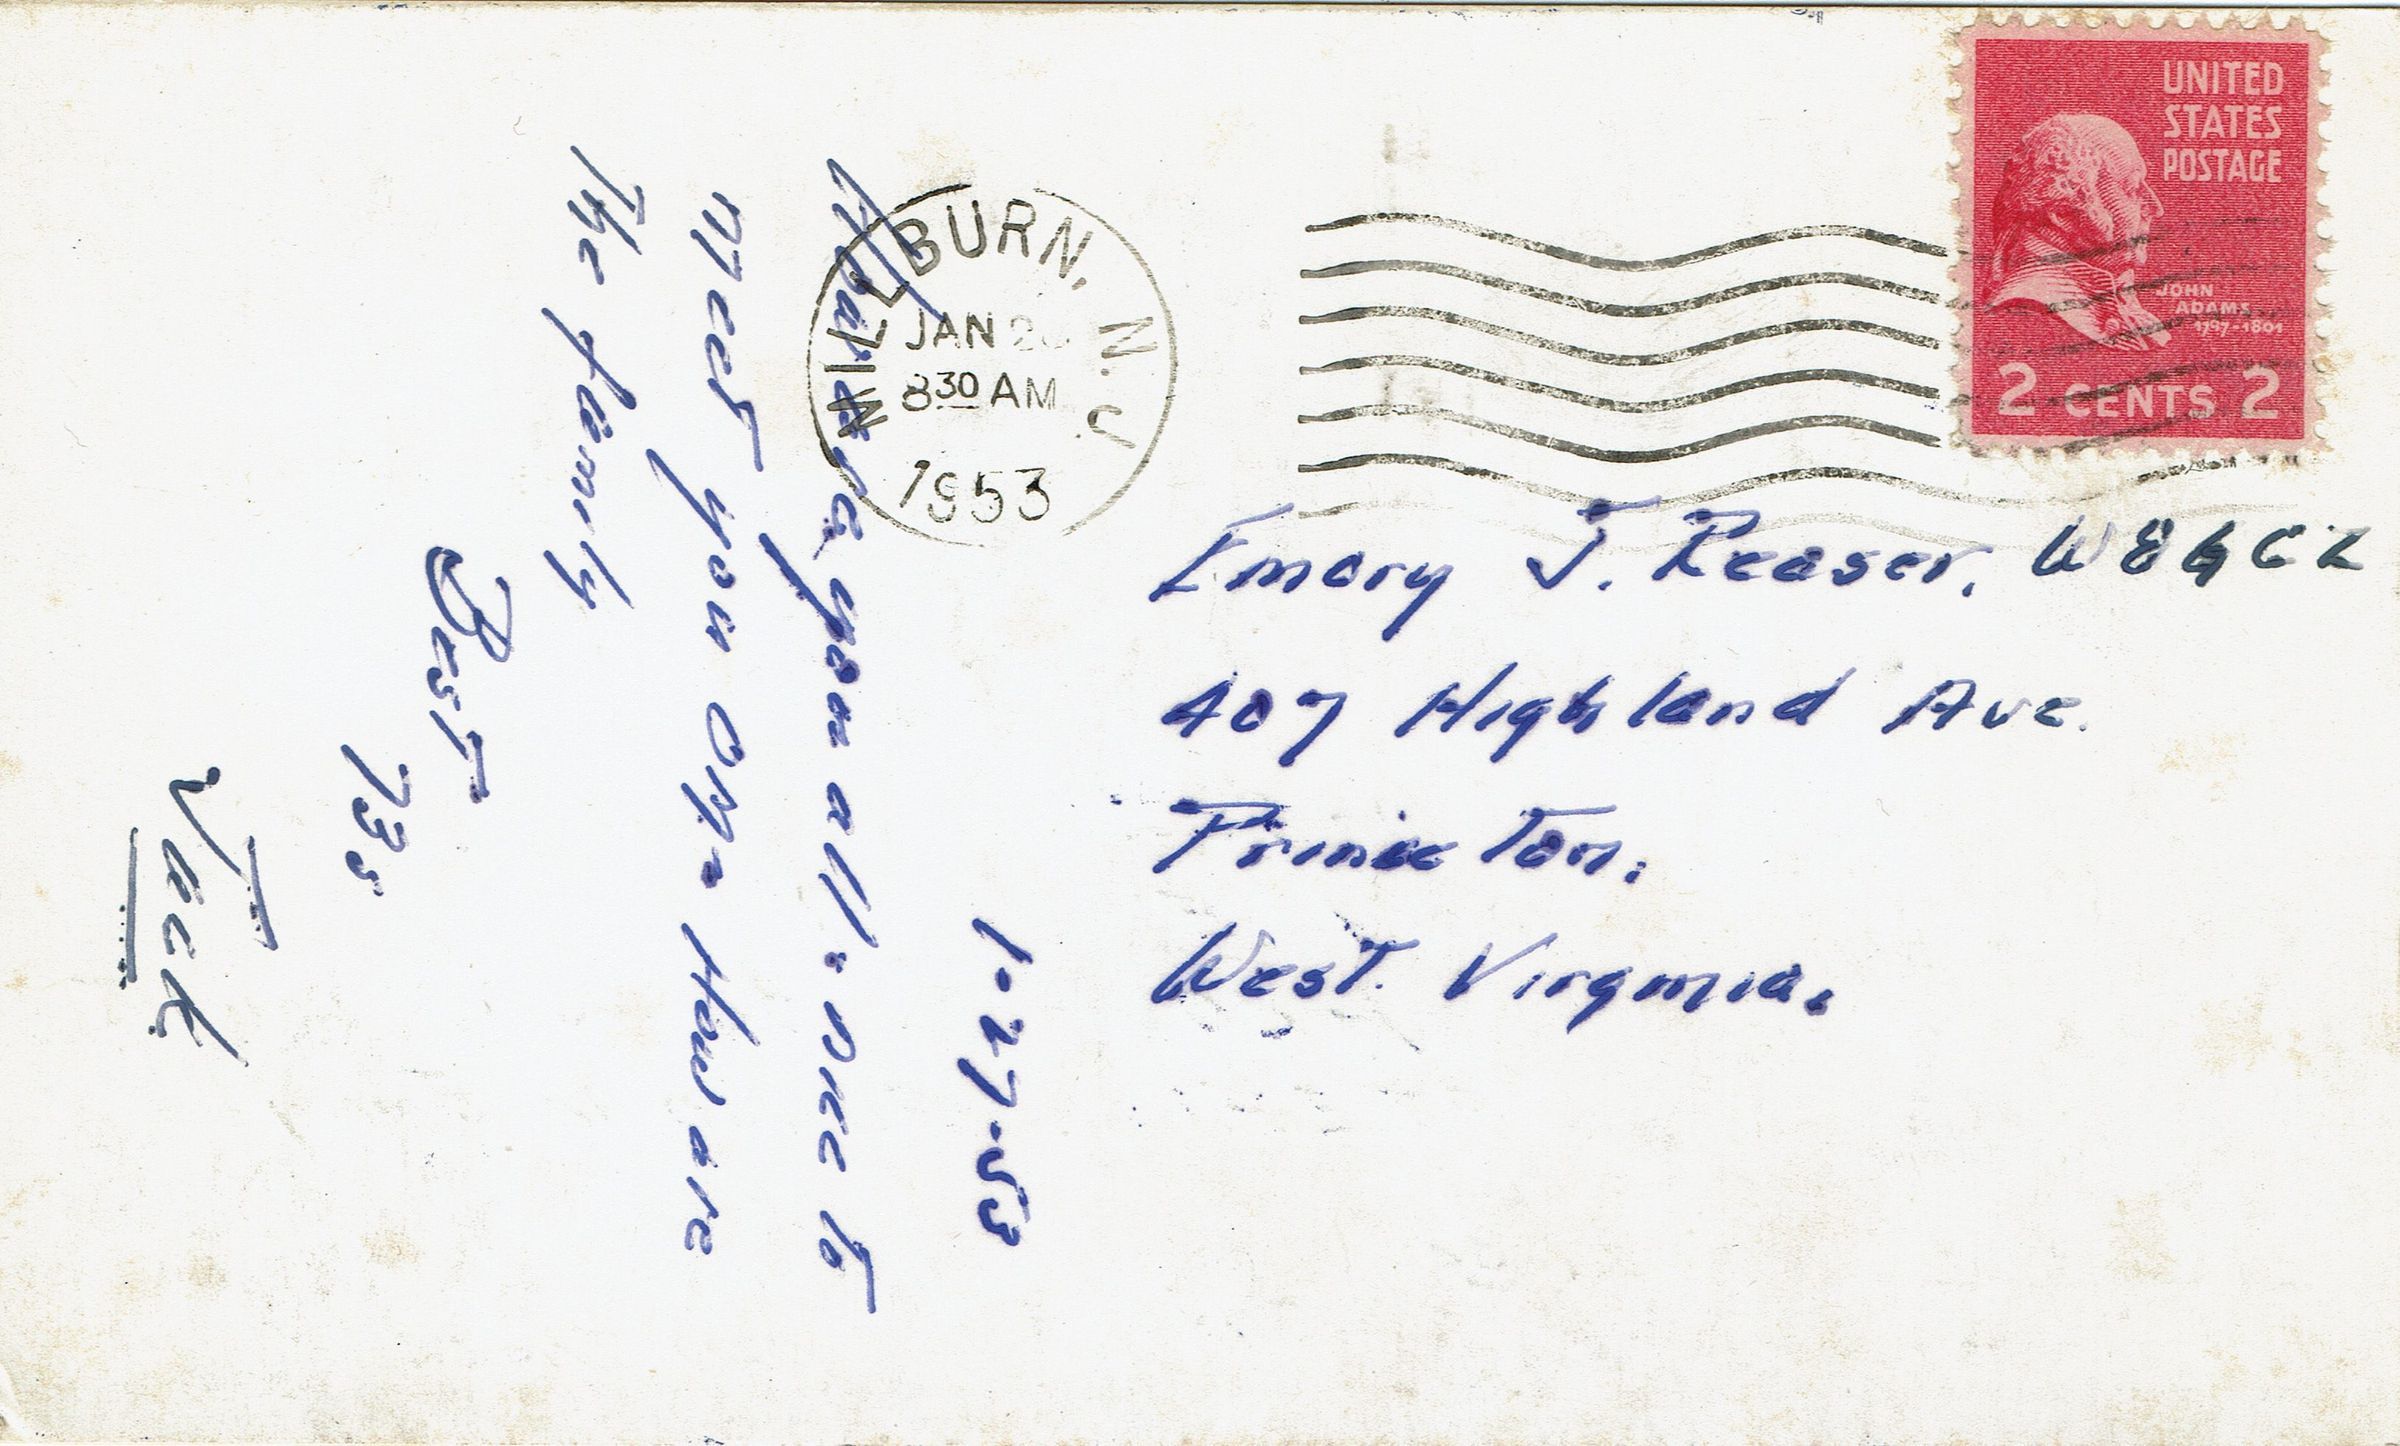 UNITED
STATES
POSTAGE
JOHN
ADAMS
1797-1801
2 CENTS 2
MILLBURN, N.J.
JAN
8 30 AM
1953
Emory J. Reaser,
407 Highland Ave.
Princeton.
West. Virginia.
1-27-53
you all. nice to
meet you OM. How are
the family
Best
73s
Jack